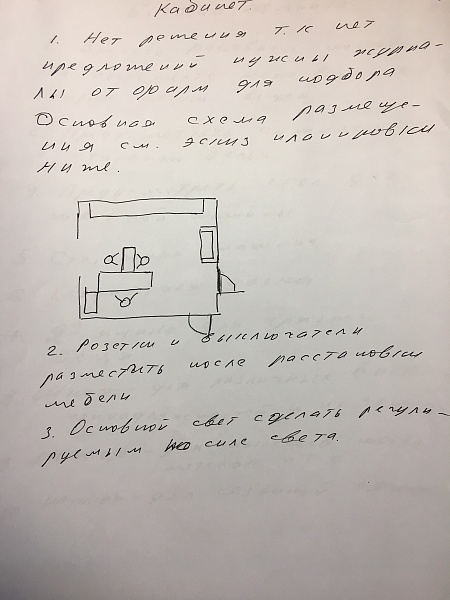 Кабинет.
1. Нет решения т.к нет
предложений нужны журна-
лы от фирм для подбора
Основная схема размеще-
ния см. эскиз планировки
ниже.
2. Розетки и выключатели
разместить после расстановки
мебели
3. Основной свет сделать регули-
руемым по силе света.